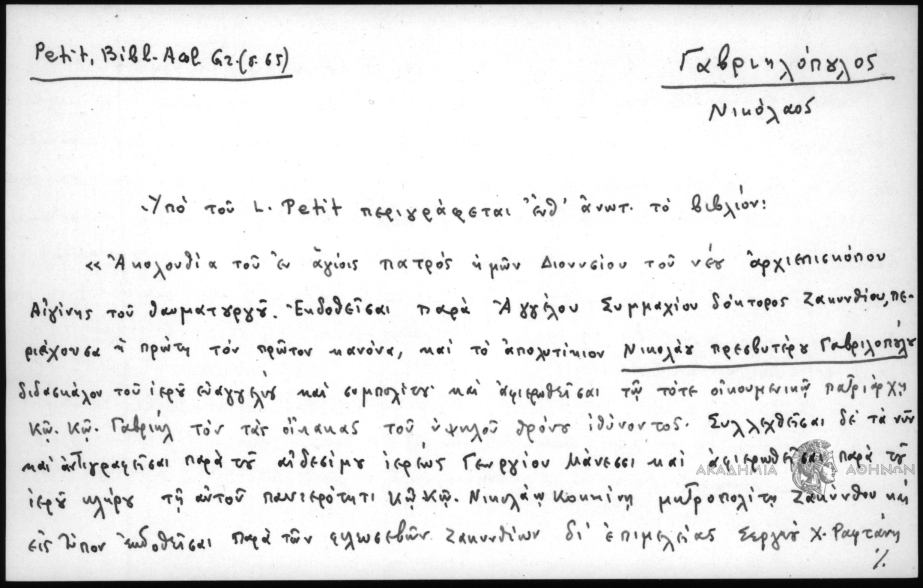 Petit, Bibl. Acol. Gr. (σ. 65)
Γαβριηλόπουλος
Νικόλαος
Ὑπό τοῦ L. Petit περιγράφεται ἔνθ' ἀνωτ. τό βιβλίον:
«Ἀκολουθία τοῦ ἐν ἁγίοις πατρός ἡμῶν Διονυσίου τοῦ νέου ἀρχιεπισκόπου
Αἰγίνης τοῦ θαυματουργοῦ. Ἐκδοθεῖσαι παρά Ἀγγέλου Συμμαχίου δόκτορος Ζακυνθίου, πε-
ριέχουσα ἡ πρώτη τόν πρῶτον κανόνα, καί τό ἀπολυτίκιον Νικολάου πρεσβυτέρου Γαβριλοπούλου
διδασκάλου τοῦ ἱεροῦ εὐαγγελίου καί συμπολίτου καί ἀφιερωθεῖσαι τῷ τότε οἰκουμενικῷ πατριάρχῃ
Κῷ. Κῷ. Γαβριήλ τόν τάς οἴακας τοῦ ὑψηλοῦ θρόνου ἰθύνοντος. Συλλεχθεῖσαι δέ τά νῦν
καί ἀντιγραφεῖσαι παρά τοῦ αἰδεσίμου ἱερέως Γεωργίου Μάνεσσι καί ἀφιερωθεῖσαι παρά τοῦ
ἱεροῦ κλήρου τῇ αὐτοῦ πανιερότητι Κῷ Κῷ. Νικολάῳ Κοκκίνῃ μητροπολίτῃ Ζακύνθου καί
εἰς τύπον ἐκδοθεῖσαι παρά τῶν φιλοσεβῶν Ζακυνθίων δι' ἐπιμελείας Σεργίου Χ. Ραφτάνη
./.
ΑΚΑΔΗΜΙΑ ΑΘΗΝΩΝ